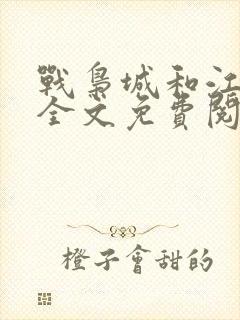 戰梟城和江
全文免費閱
橙子會甜的